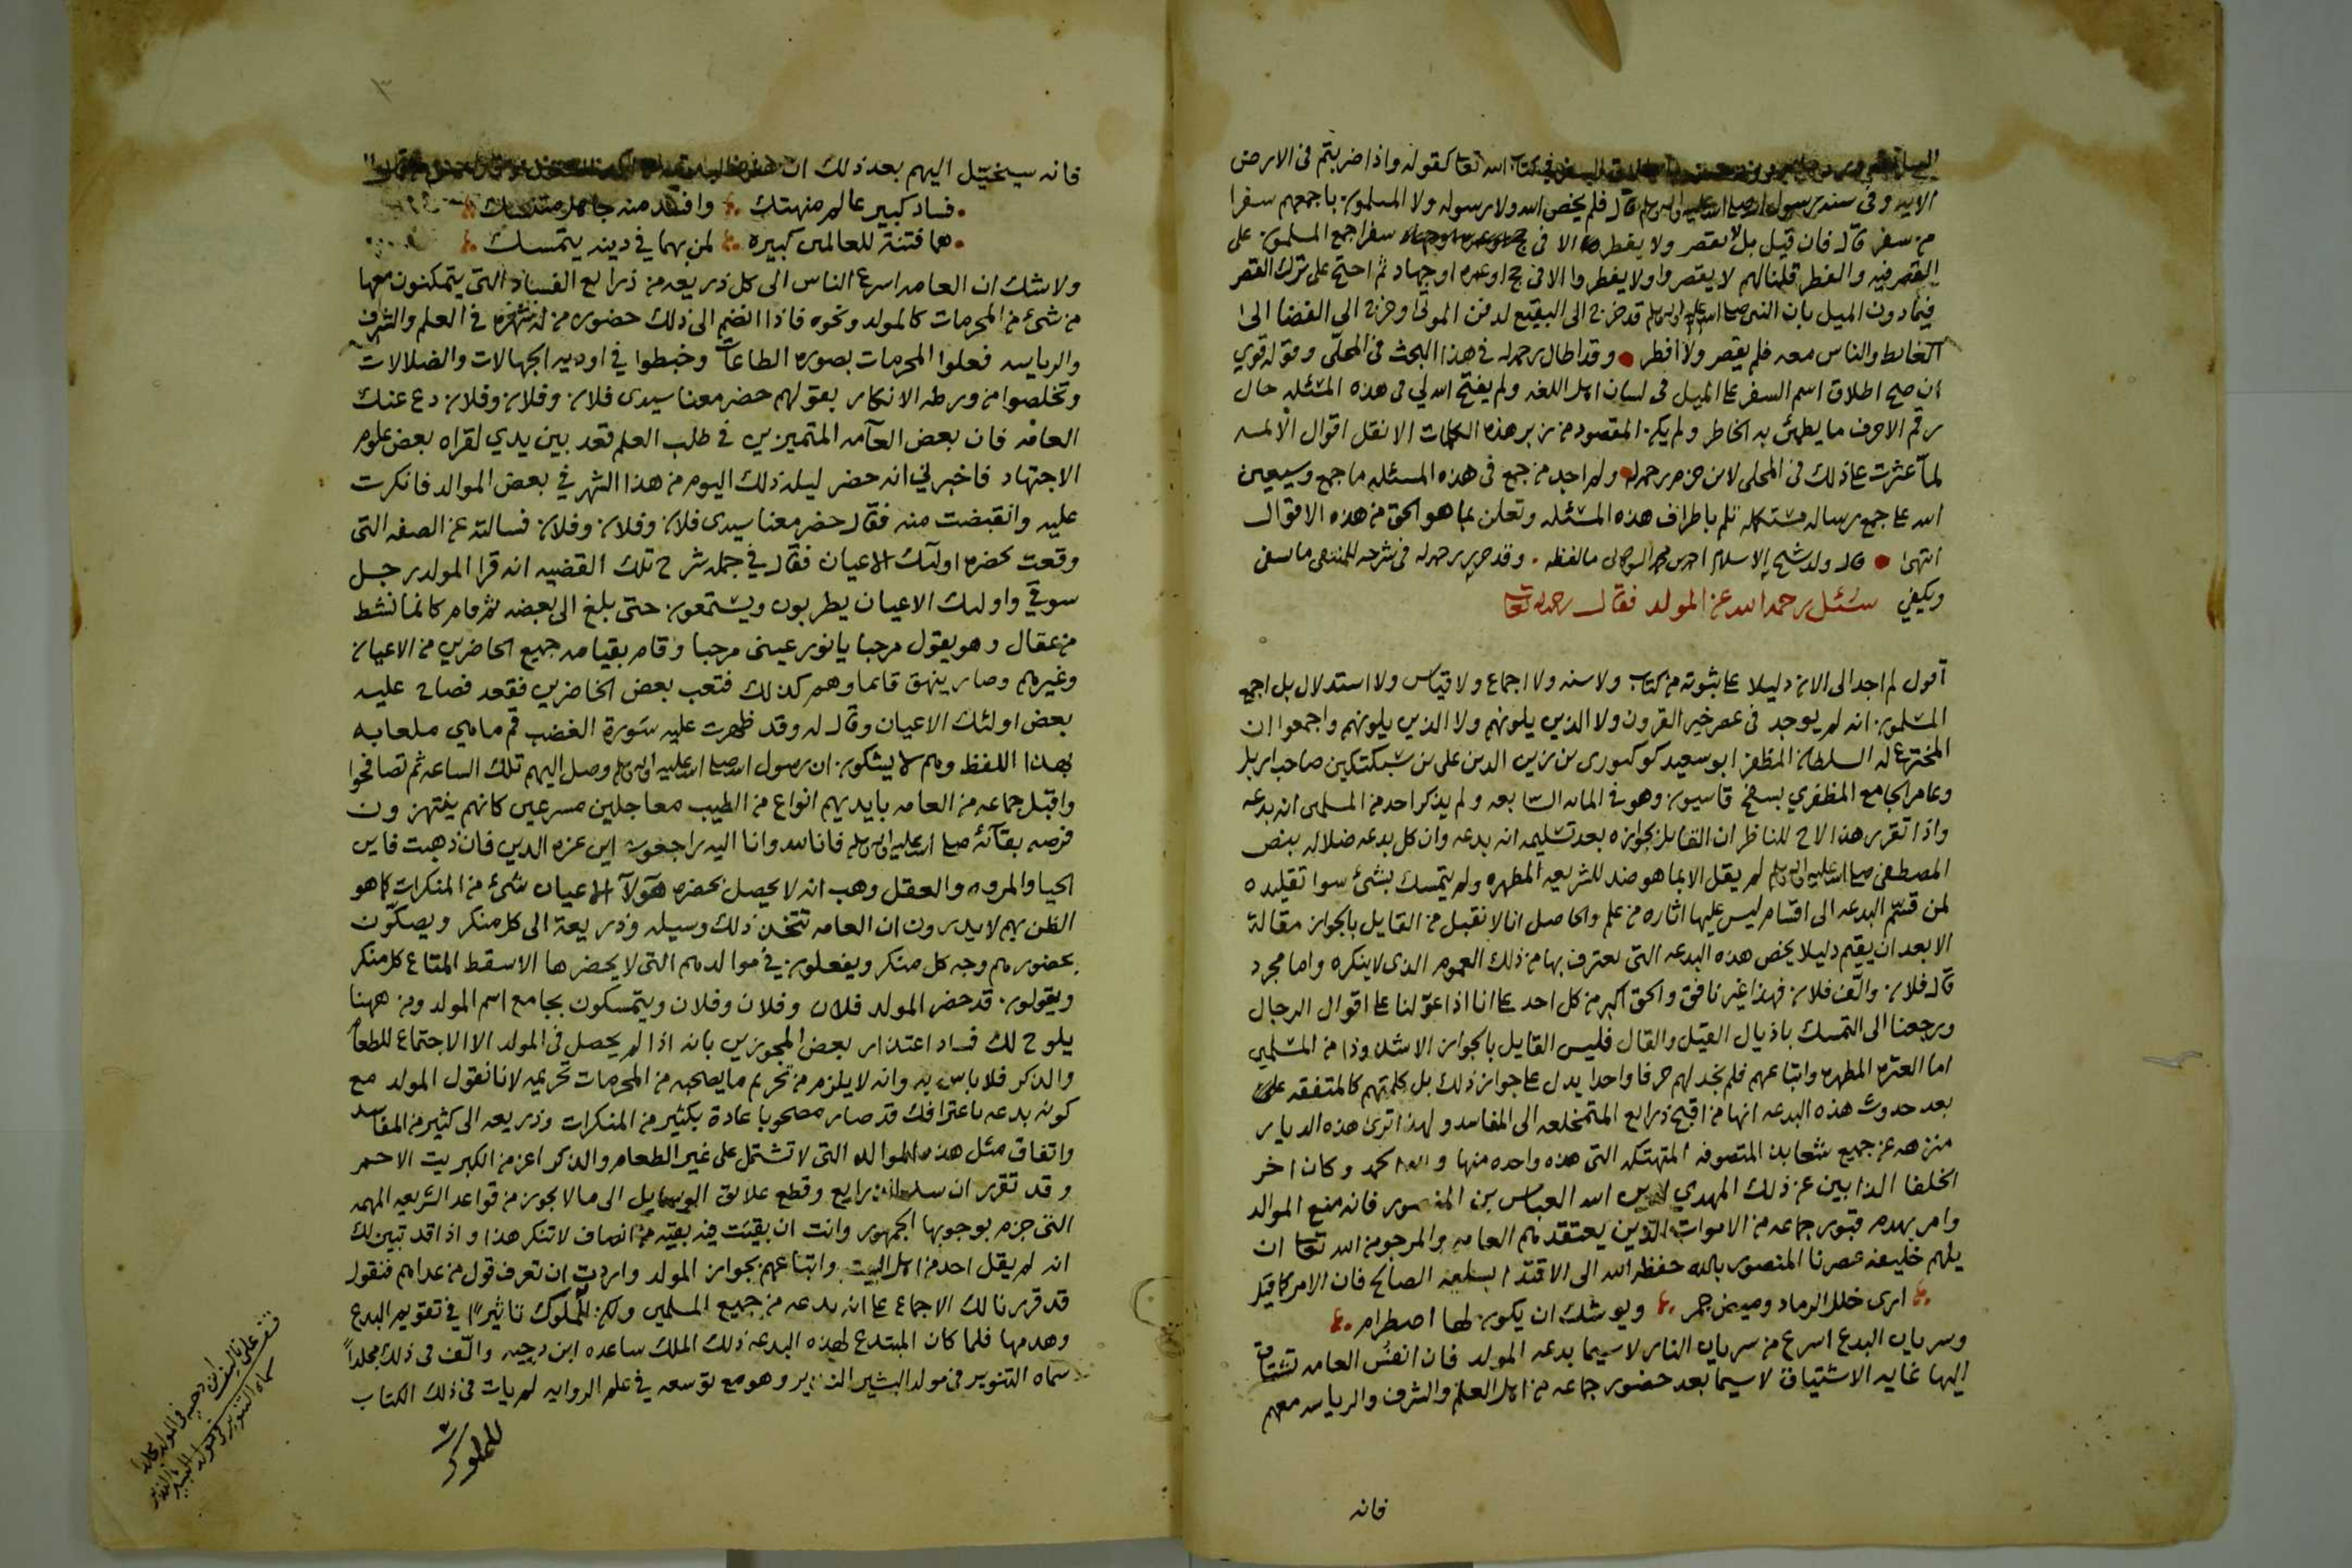 الله تعا كقوله واذا ضربتم فى الارض
الايه وفى سنة رسول الله صلى الله عليه واله وسلم قال فلم يخص الله ولا رسوله ولا المسلمون باجمعهم سفرا
من سفر قال فان قيل بل لا يقصر ولا يفطر الا فى سفر اجمع المسلمون على
القصر فيه والفطر قلنا لهم لا يقصروا ولا يفطروا الا فى حج او عمره او جهاد ثم احتج على ترك القصر
فيما دون الميل بان النبى صلى الله عليه واله وسلم قد خرج الى البقيع لدفن الموتى وخرج الى الفضا الى
الغايط والناس معه فلم يقصر ولا افطر • وقد اطال رحمه الله فى هذا البحث فى المحلّى وقوله قوي
ان صح اطلاق اسم السفر على الميل فى لسان اهل اللغه ولم يفتح الله لي فى هذه المسئله حال
رقم الاحرف ما يطمئن به الخاطر ولم يكن المقصود من زبر هذه الكلمات الا نقل اقوال الائمه
لما عثرت على ذلك فى المحلى لابن حزم رحمه الله ولم اجد من جمع فى هذه المسئله ما جمع وسيعين
الله على جمع رساله مستكمله تلم باطراف هذه المسئله وتعلن بما هو الحق من هذه الاقوال
انتهى • قال ولد شيخ الاسلام احمد بن محمد الشوكانى ما لفظه • وقد حرر رحمه الله فى شرحه للمنتقى ما يسفى
ويكفي سئل رحمه الله عن المولد فقال رحمه الله تعا
اقول لم اجد الى الان دليلا على ثبوته من كتاب ولا سنه ولا اجماع ولا قياس ولا استدلال بل اجمع
المسلمون انه لم يوجد فى عصر خير القرون ولا الذين يلونهم ولا الذين يلونهم واجمعوا ان
المخترع له السلطان المظفر ابو سعيد كوكبورى بن زين الدين على بن سبكتكين صاحب اربل
وعامر الجامع المظفري بسفح قاسيون وهو فى المايه السابعه ولم يذكر احد من المسلمين انه بدعه
واذا تقرر هذا لاح للناظر ان القايل بجوازه بعد تسليمه انه بدعه وان كل بدعه ضلاله بنص
المصطفى صلى الله عليه واله وسلم لم يقل الا بما هو ضد للشريعه المطهره ولم يتمسك بشئ سوا تقليده
لمن قسّم البدعه الى اقسام ليس عليها اثاره من علم والحاصل انا لا نقبل من القايل بالجواز مقالة
الا بعد ان يقيم دليلا يخص هذه البدعه التى يعترف بها من ذلك العموم الذى لا ينكره واما مجرد
قال فلان والّف فلان فهذا غير نافق والحق اكبر من كل احد على انا اذا عوّلنا على اقوال الرجال
ورجعنا الى التمسك باذيال القيل والقال فليس القايل بالجواز الا شذوذا من المسلمين
اما العتره المطهره واتباعهم فلم نجد لهم حرفا واحدا يدل على جواز ذلك بل كلمتهم كالمتفقه على
بعد حدوث هذه البدعه انها من اقبح ذرايع المتمخلعه الى المفاسد ولهذا ترى هذه الديار
منزهه عن جميع شعابذ المتصوفه المتهتكه التى هذه واحده منها ولله الحمد وكان اخر
الخلفا الذابين عن ذلك المهدي لدين الله العباس بن المنصور فانه منع الموالد
وامر بهدم قبور جماعه من الاموات الذين يعتقدهم العامه والمرجو من الله تعا ان
يلهم خليفه عصرنا المنصور بالله حفظه الله الى الاقتدا بسلفه الصالح فان الامر كما قيل
ارى خلل الرماد وميض جمر ويوشك ان يكون لها اضطرام
وسريان البدع اسرع من سريان النار لا سيما بدعه المولد فان انفس العامه تشتاق
اليها غايه الاشتياق لا سيما بعد حضور جماعه من اهل العلم والشرف والرياسه معهم
فانه
فانه سيخيّل اليهم بعد ذلك ان
• فساد كبير عالم متهتك وافسد منه جاهل متنسك
• هما فتنة للعالمين كبيره لمن بهما في دينه يتمسك
ولا شك ان العامه اسرع الناس الى كل ذريعه من ذرايع الفساد التى يتمكنون معها
من شئ من المحرمات كالمولد ونحوه فاذا انضم الى ذلك حضور من له شهره فى العلم والشرف
والرياسه فعلوا المحرمات بصوره الطاعات وخبطوا في اوديه الجهالات والضلالات
وتخلصوا من ورطه الانكار بقولهم حضر معنا سيدى فلان وفلان وفلان دع عنك
العامه فان بعض العامه المتميزين فى طلب العلم قعد بين يدي لقراه بعض علوم
الاجتهاد فاخبرني انه حضر ليله ذلك اليوم من هذا الشهر في بعض الموالد فانكرت
عليه وانقبضت منه فقال حضر معنا سيدى فلان وفلان وفلان فسالته عن الصفه التى
وقعت بحضره اولئك الاعيان فقال في جمله شرح تلك القضيه انه قرا المولد رجل
سوقي واولئك الاعيان يطربون ويستمعون حتى بلغ الى بعضه ثم قام كانما نشط
من عقال وهو يقول مرحبا يا نور عينى مرحبا وقام بقيامه جميع الحاضرين من الاعيان
وغيرهم وصار ينهق قايما وهم كذلك فتعب بعض الحاضرين فقعد فصاح عليه
بعض اولئك الاعيان وقال له وقد ظهرت عليه سَورة الغضب قم ما هي ملعابه
بهذا اللفظ وهم لا يشكون ان رسول الله صلى الله عليه واله وسلم وصل اليهم تلك الساعه ثم تصافحوا
واقبل جماعه من العامه بايديهم انواع من الطيب معاجلين مسرعين كانهم ينتهزون
فرصه بقائه صلى الله عليه واله وسلم فانا لله وانا اليه راجعون اين عزه الدين فان ذهبت فاين
الحيا والمروه والعقل وهب انه لا يحصل بحضره هؤلآ الاعيان شئ من المنكرات كما هو
الظن بهم لا يدرون ان العامه تتخذ ذلك وسيله وذريعة الى كل منكر ويصكّون
بحضورهم وجه كل منكر ويفعلون في موالدهم التى لا يحضرها الا سقط المتاع كل منكر
ويقولون قد حضر المولد فلان وفلان وفلان ويتمسكون بجامع اسم المولد ومن ههنا
يلوح لك فساد اعتذار بعض المجوزين بانه اذا لم يحصل فى المولد الا الاجتماع للطعام
والذكر فلا باس به وانه لا يلزم من تحريم ما يصحبه من المحرمات تحريمه لانا نقول المولد مع
كونه بدعه باعترافك قد صار مصحوبا عادة بكثير من المنكرات وذريعه الى كثير من المفاسد
واتفاق مثل هذه الموالد التى لا تشتمل على غير الطعام والذكر اعز من الكبريت الاحمر
وقد تقرر ان سد الذرايع وقطع علايق الوسايل الى ما لا يجوز من قواعد الشريعه المهمه
التى جزم بوجوبها الجمهور وانت ان بقيَت فيه بقيّه من انصاف لا تنكر هذا واذا قد تبين لك
انه لم يقل احد من اهل البيت واتباعهم بجواز المولد واردت ان تعرف قول من عداهم فنقول
قد قررنا لك الاجماع على انه بدعه من جميع المسلمين ولكن للملوك تاثيرًا في تقويم البدع
وهدمها فلما كان المبتدع لهذه البدعه ذلك الملك ساعده ابن دحيه والّف فى ذلك مجلداً
سماه التنوير فى مولد البشير النذير وهو مع توسعه في علم الروايه لم يات فى ذلك الكتاب
للملوك
قف على تاليف ابن دحيه فى المولد مجلدا
سماه التنوير فى مولد البشير النذير